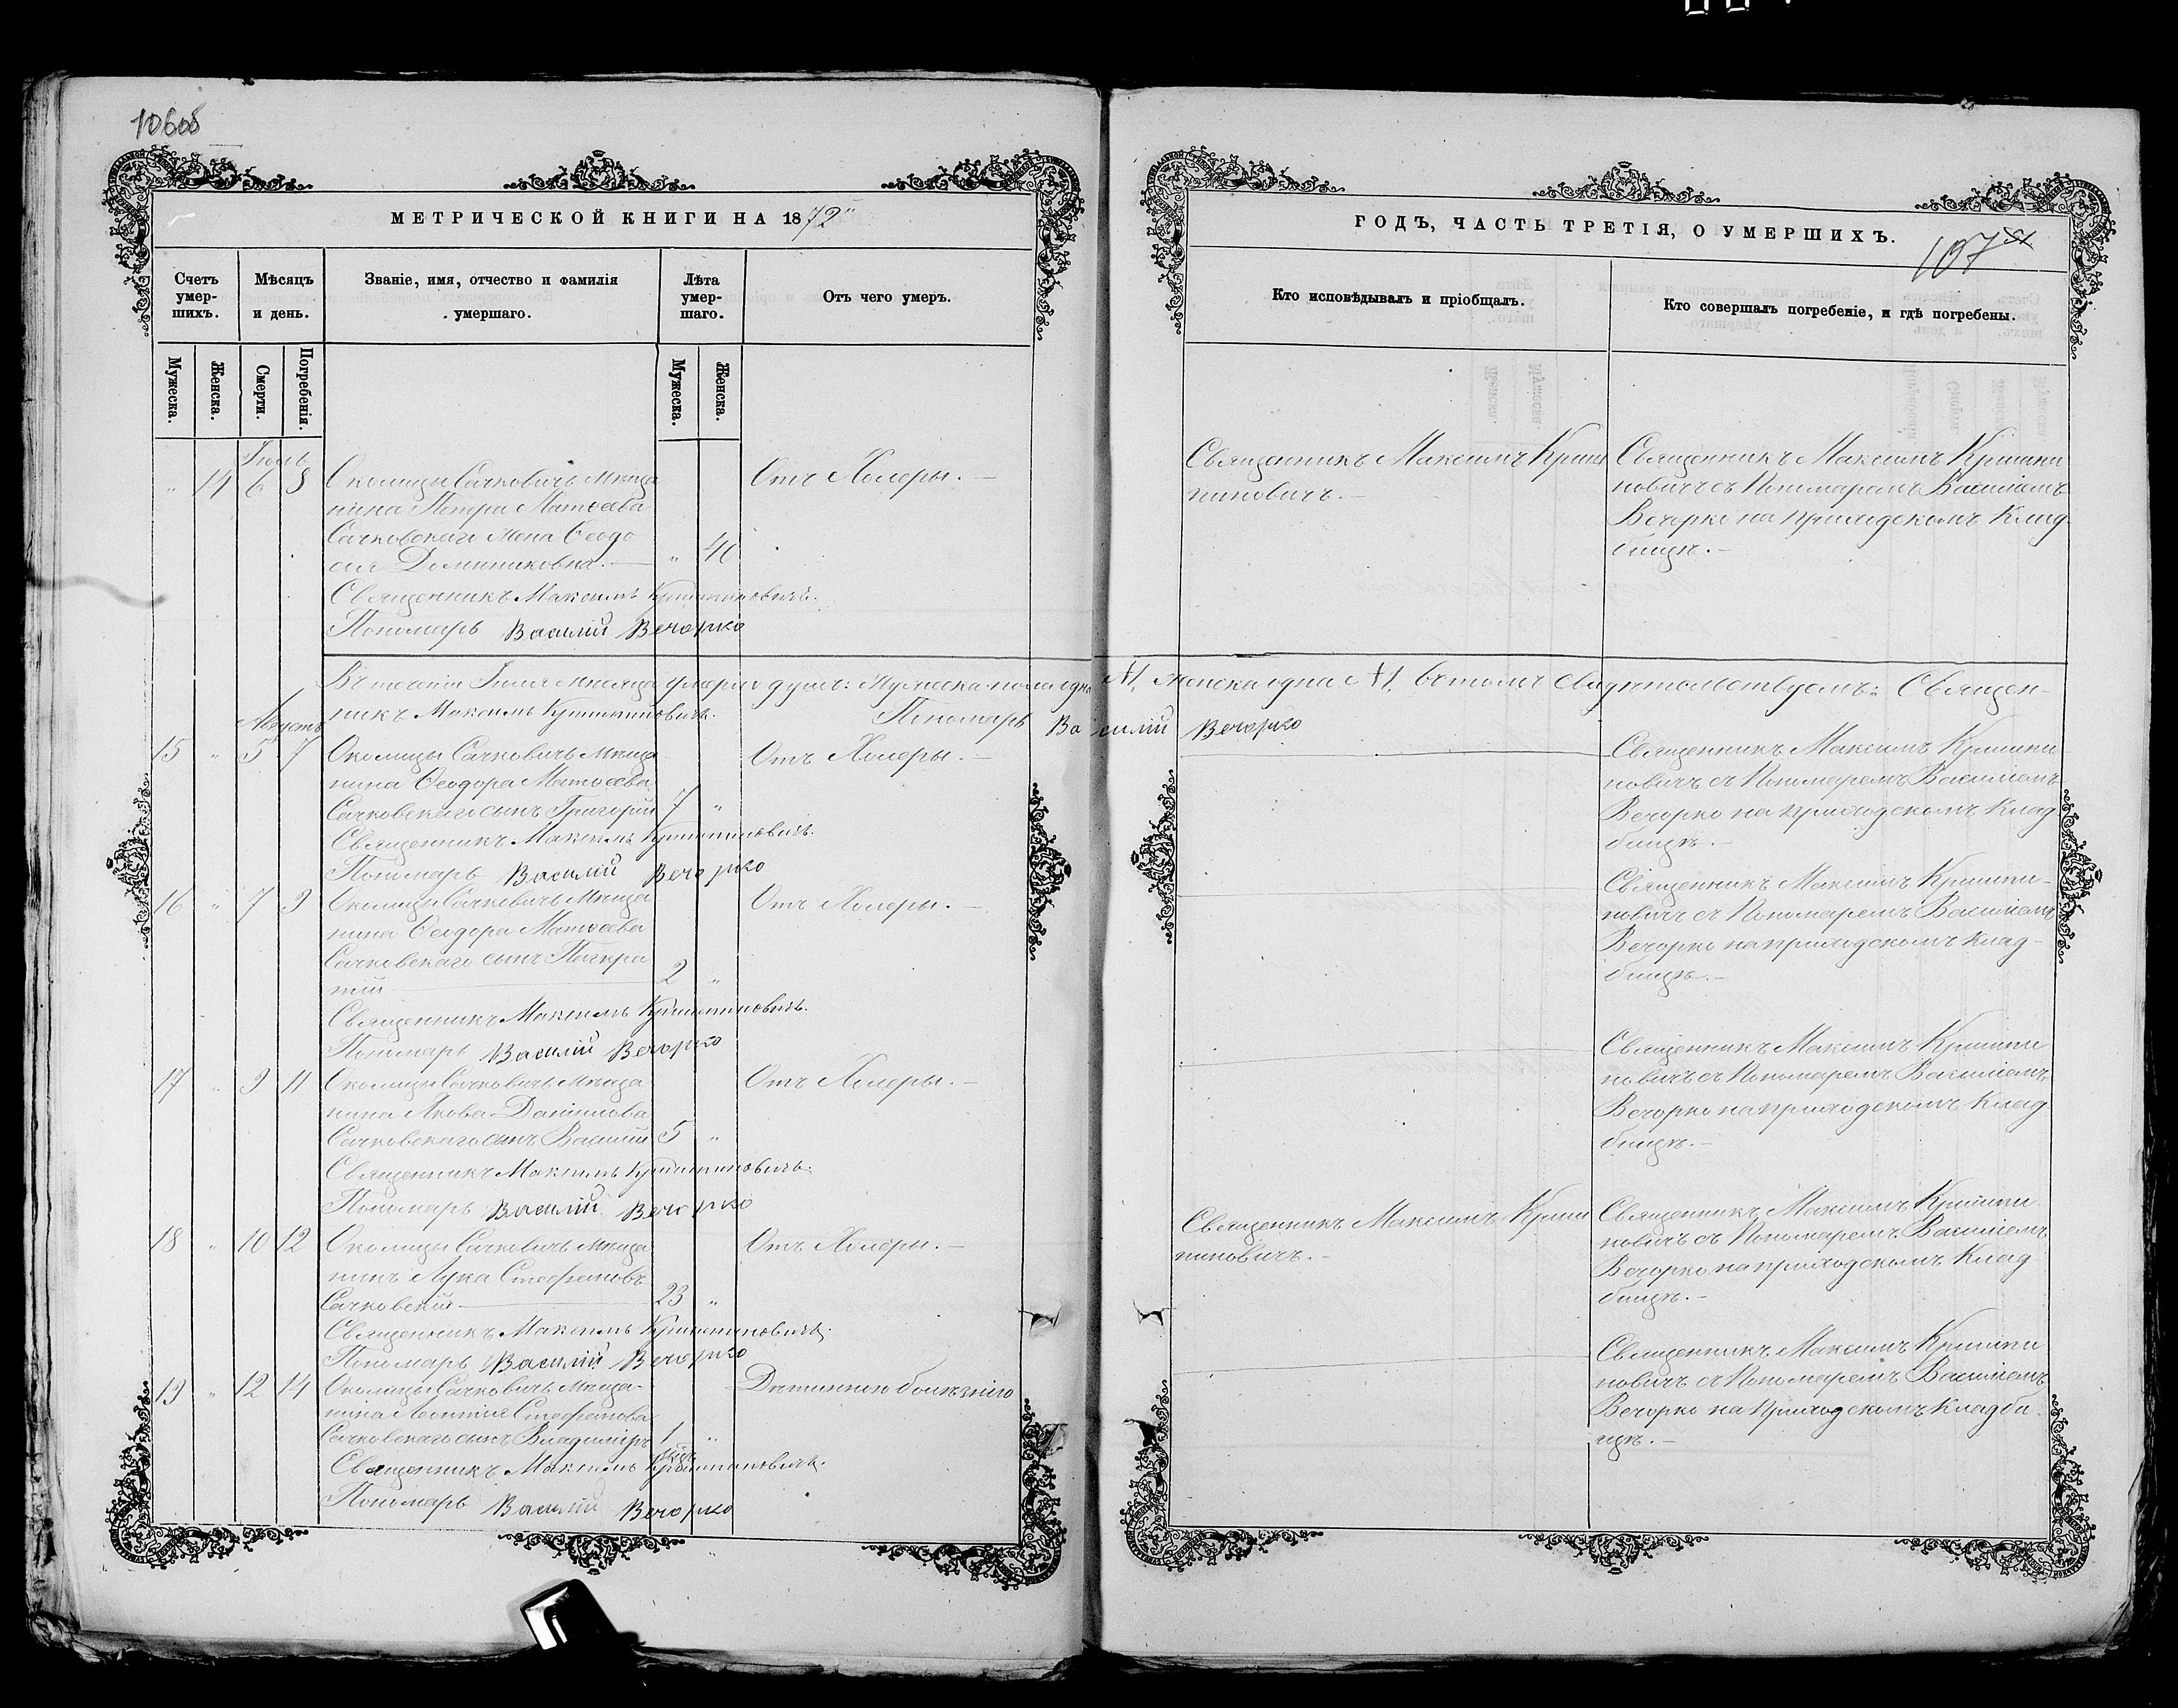 106об
МЕТРИЧЕСКОЙ КНИГИ НА 1872
Счетъ умер-шихъ.
Мѣсяцъ и день.
Званіе, имя, отчество и фамилія умершаго.
Лѣта умер-шаго.
Отъ чего умеръ.
Мужеска.
Женска.
Смерти.
Погребенія.
Мужеска.
Женска.
Іюль
" 14 6 8 Околицы Сачковичъ Мѣща Отъ Холеры. —
нина Петра Матѳеева
Сачковскаго жена Ѳеодо
сія Доминиковна. — "
Священникъ Максимъ Криштиновичъ.
Пономарь Василій Вечорко
Въ теченіи Іюля мѣсяца умерло душъ: Мужеска пола одна №1, женска одна №1, въ томъ свидѣтельствуемъ: Священ-
никъ Максимъ Пономарь Василій Вечорко
Августъ
15 " 5 7 Околицы Сачковичъ Мѣща Отъ Холеры. —
нина Ѳеодора Матѳеева
Сачковскаго сынъ Григорій 7 "
Священникъ Максимъ
Пономарь Василій Вечорко
16 " 7 9 Околицы Сачковичъ Мѣща Отъ Холеры. —
нина Ѳеодора Матѳеева
Сачковскаго сынъ Панкра
тій — 2 "
Священникъ Максимъ
Пономарь Василій Вечорко
17 " 9 11 Околицы Сачковичъ Мѣща Отъ Холеры. —
нина Якова Даніилова
Сачковскаго сынъ Василій 5 "
Священникъ Максимъ
Пономарь Василій Вечорко
18 " 10 12 Околицы Сачковичъ Мѣща Отъ Холеры. —
нинъ Лука Стефановъ
Сачковскій — 23 "
Священникъ Максимъ
Пономарь Василій Вечорко
19 " 12 14 Околицы Сачковичъ Мѣща- Дѣтинною болѣзнію
нина Леонтія Стефанова
Сачковскаго сынъ Владиміръ 1 "
Священникъ Максимъ
Пономарь Василій Вечорко
ГОДЪ, ЧАСТЬ ТРЕТІЯ, О УМЕРШИХЪ.
107
Кто исповѣдывалъ и пріобщалъ.
Кто совершалъ погребеніе, и гдѣ погребены.
Священникъ Максимъ
Священникъ Максимъ
новичъ съ Пономаремъ Василіемъ
Вечорко на приходскомъ Клад
бищѣ. —
Священникъ Максимъ
новичъ съ Пономаремъ Василіемъ
Вечорко на приходскомъ Клад
бищѣ. —
Священникъ Максимъ
новичъ съ Пономаремъ Василіемъ
Вечорко на приходскомъ Клад-
бищѣ. —
Священникъ Максимъ
новичъ съ Пономаремъ Василіемъ
Вечорко на приходскомъ Клад
бищѣ. —
Священникъ Максимъ
Священникъ Максимъ
новичъ съ Пономаремъ Василіемъ
Вечорко на приходскомъ Клад
бищѣ. —
Священникъ Максимъ
новичъ съ Пономаремъ Василіемъ
Вечорко на Приходскомъ Кладби
щѣ. —